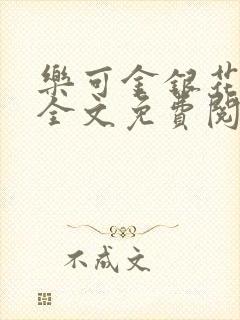 樂可金銀花
全文免費閱
不成文